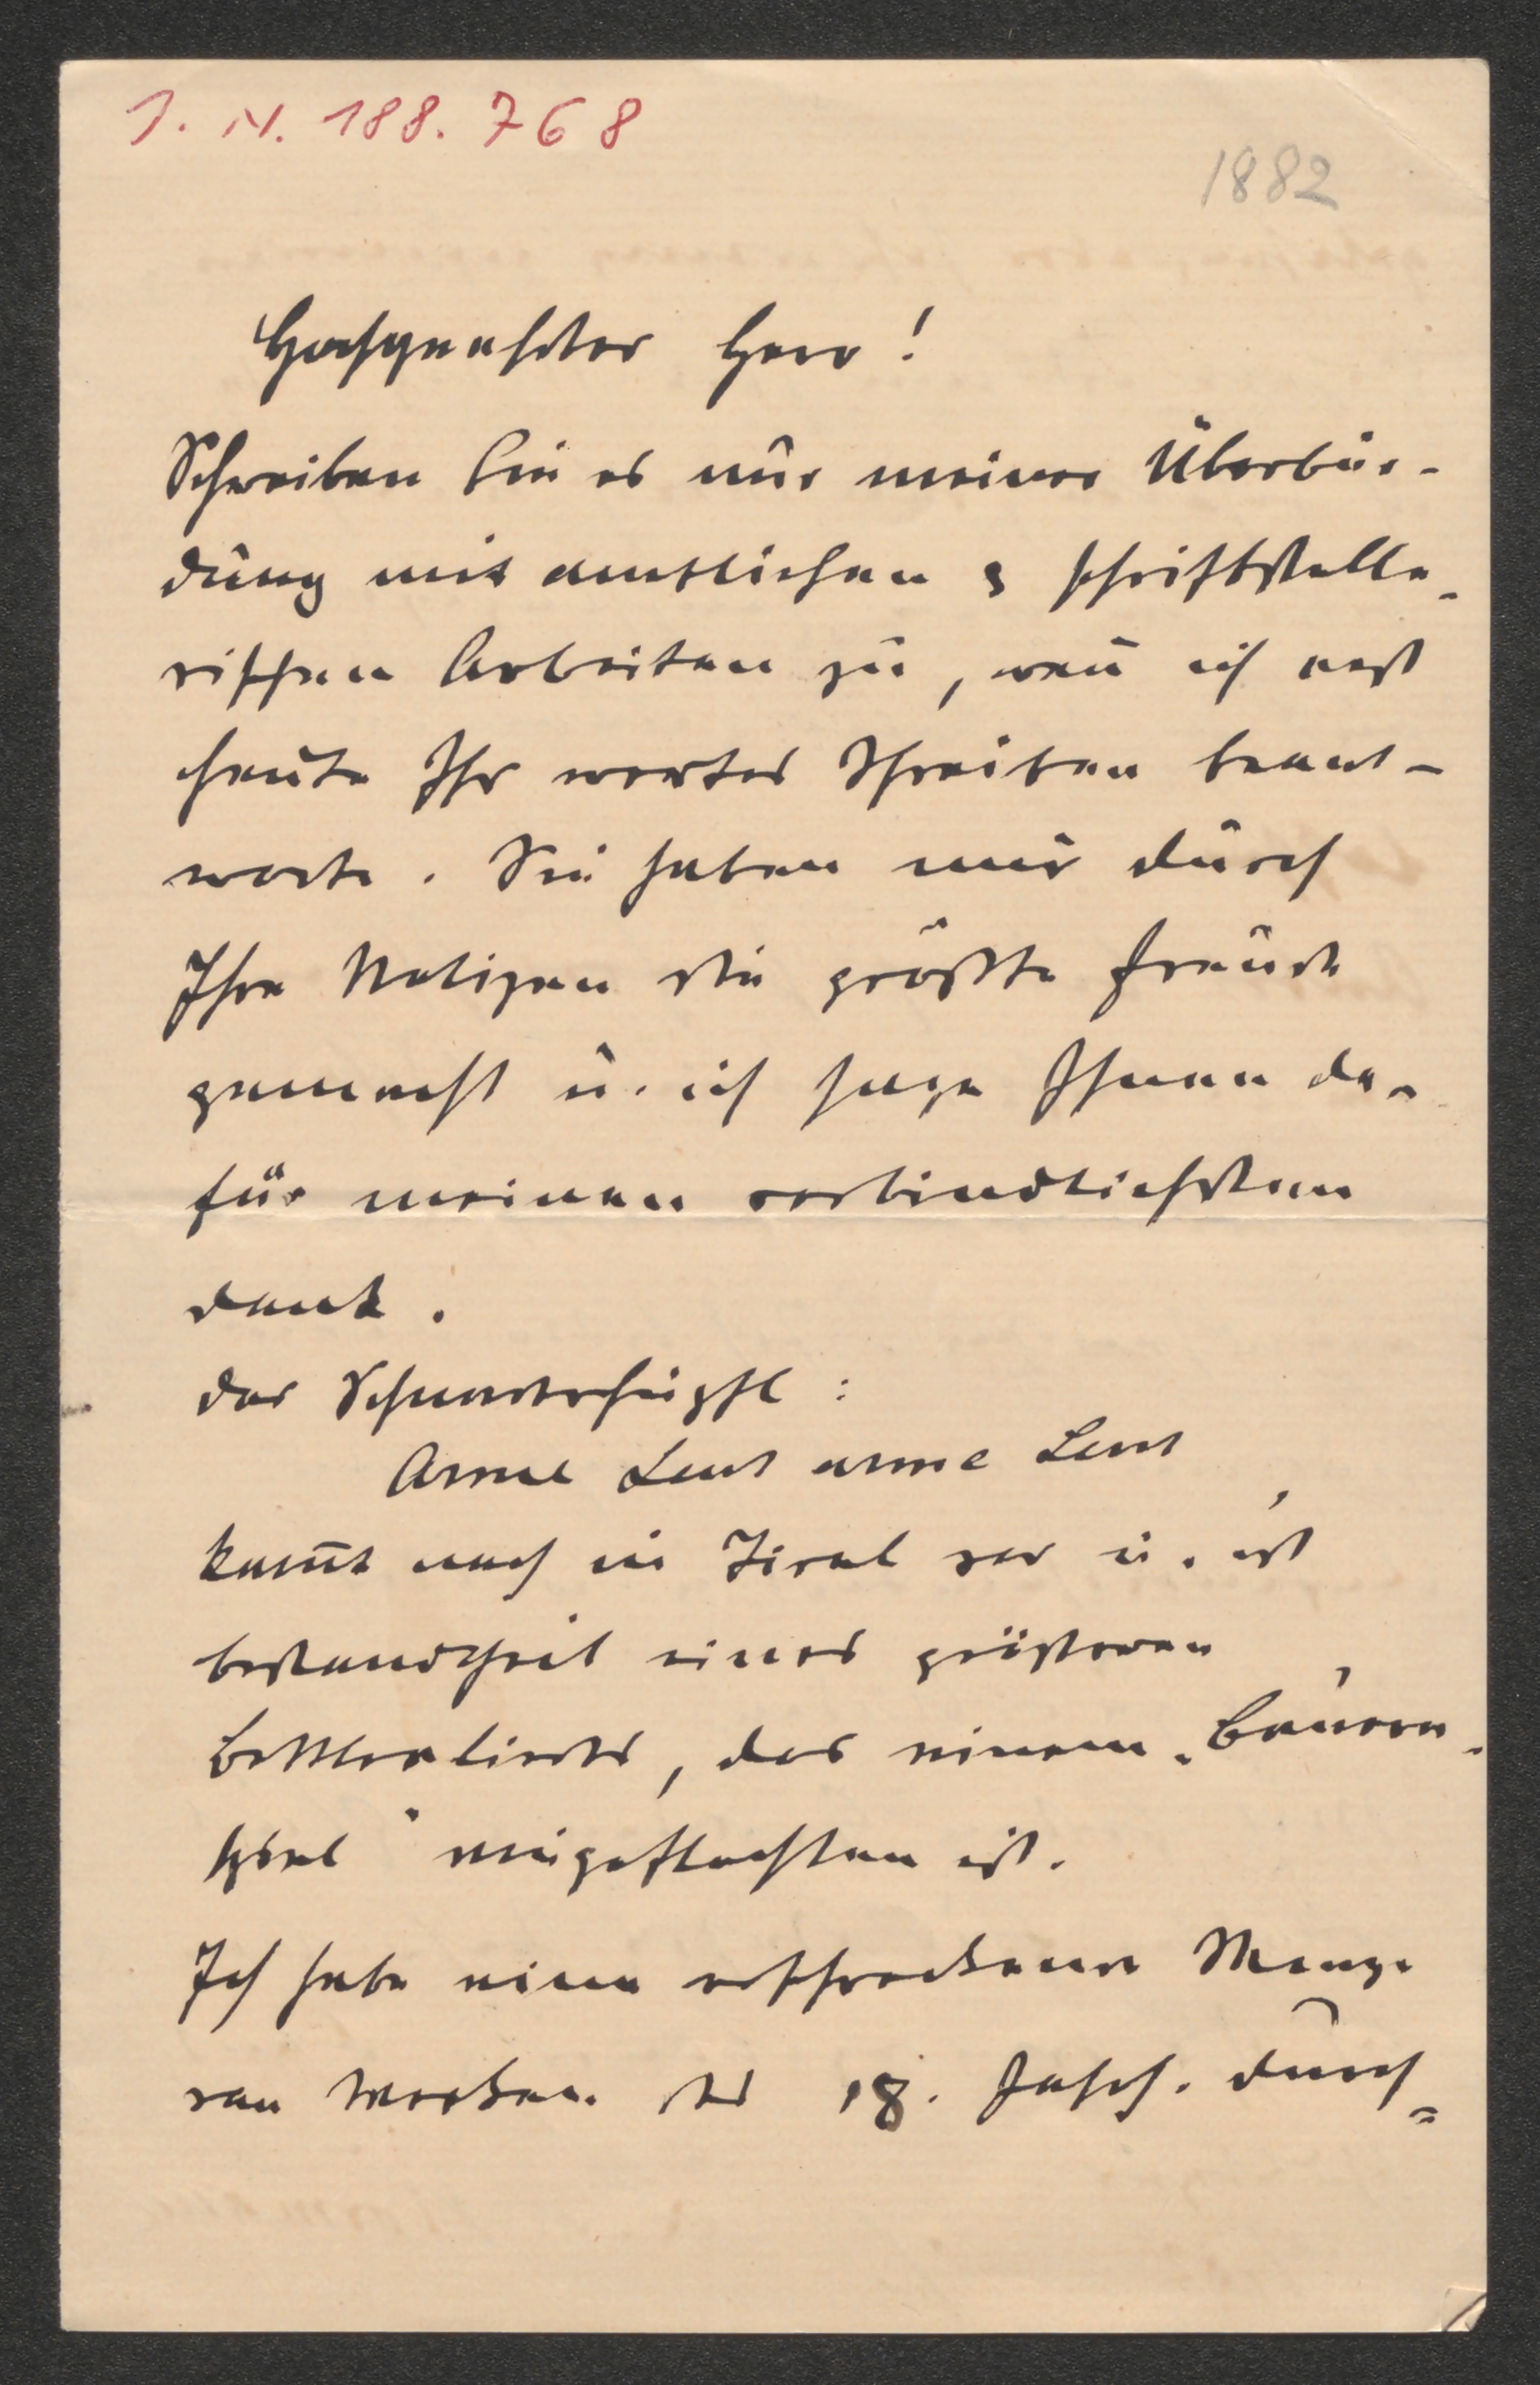 J. N. 188.768
1882
Hochgeehrter Herr!
Schreiben Sie es nur meiner Überbür-
dung mit amtlichen & schriftstelle-
rischen Arbeiten zu, wen̄ ich erst
heute Ihr wertes Schreiben beant-
worte. Sie haben mir durch
Ihre Notizen die größte Freude
gemacht u. ich sage Ihnen da-
für meinen verbindlichsten
Dank.
Das Schnaderhüpfl:
Arme Leut arme Leut
kom̄t auch in Tirol vor u. ist
Bestandtheil eines größeren
Bettlerliedes, das einem „Bauern-
spiel" eingeflochten ist.
Ich habe eine erschreckende Menge
von Werken des 18. Jahrh. durch-